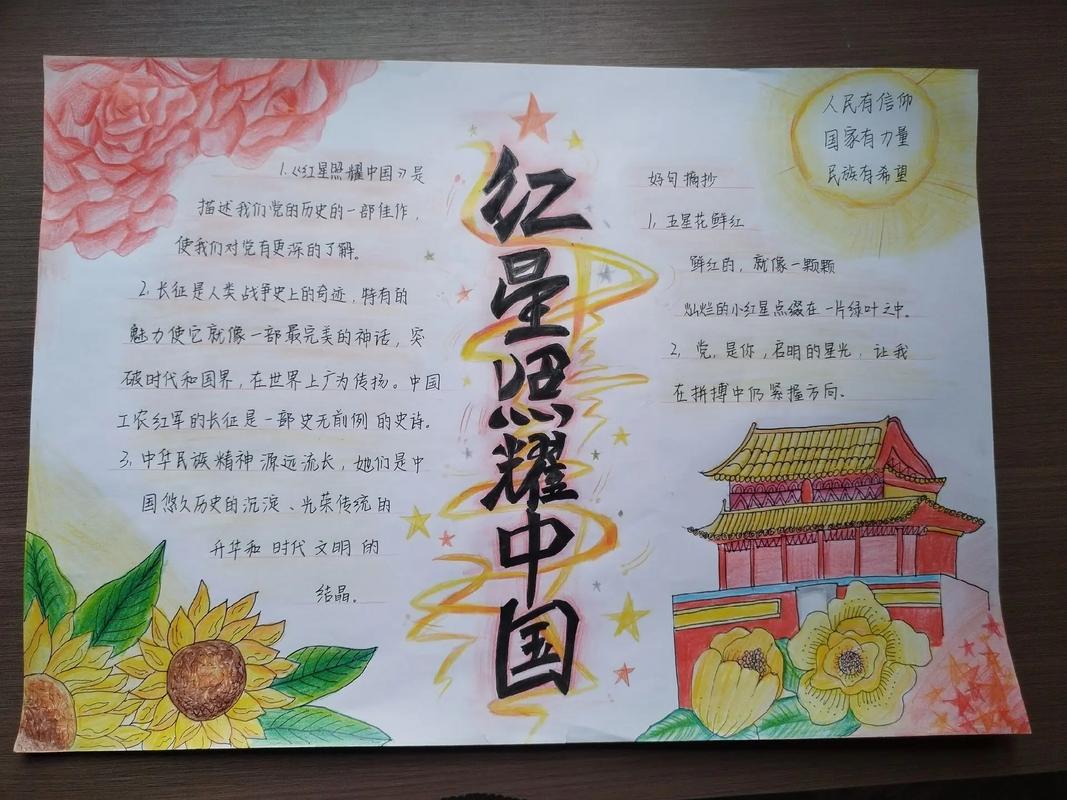 1.《红星照耀中国》是
描述我们党的历史的一部佳作，
使我们对党有更深的了解。
2. 长征是人类战争史上的奇迹，特有的
魅力使它就像一部最完美的神话，突
破时代和国界，在世界上广为传扬。中国
工农红军的长征是一部史无前例的史诗。
3. 中华民族精神源远流长，她们是中
国悠久历史的沉淀、光荣传统的
升华和时代文明的
结晶。
红星照耀中国
好句摘抄
1. 五星花鲜红
鲜红的，就像一颗颗
灿烂的小红星点缀在一片绿叶之中。
2. 党，是你，启明的星光，让我
在拼搏中仍紧握方向。
人民有信仰
国家有力量
民族有希望